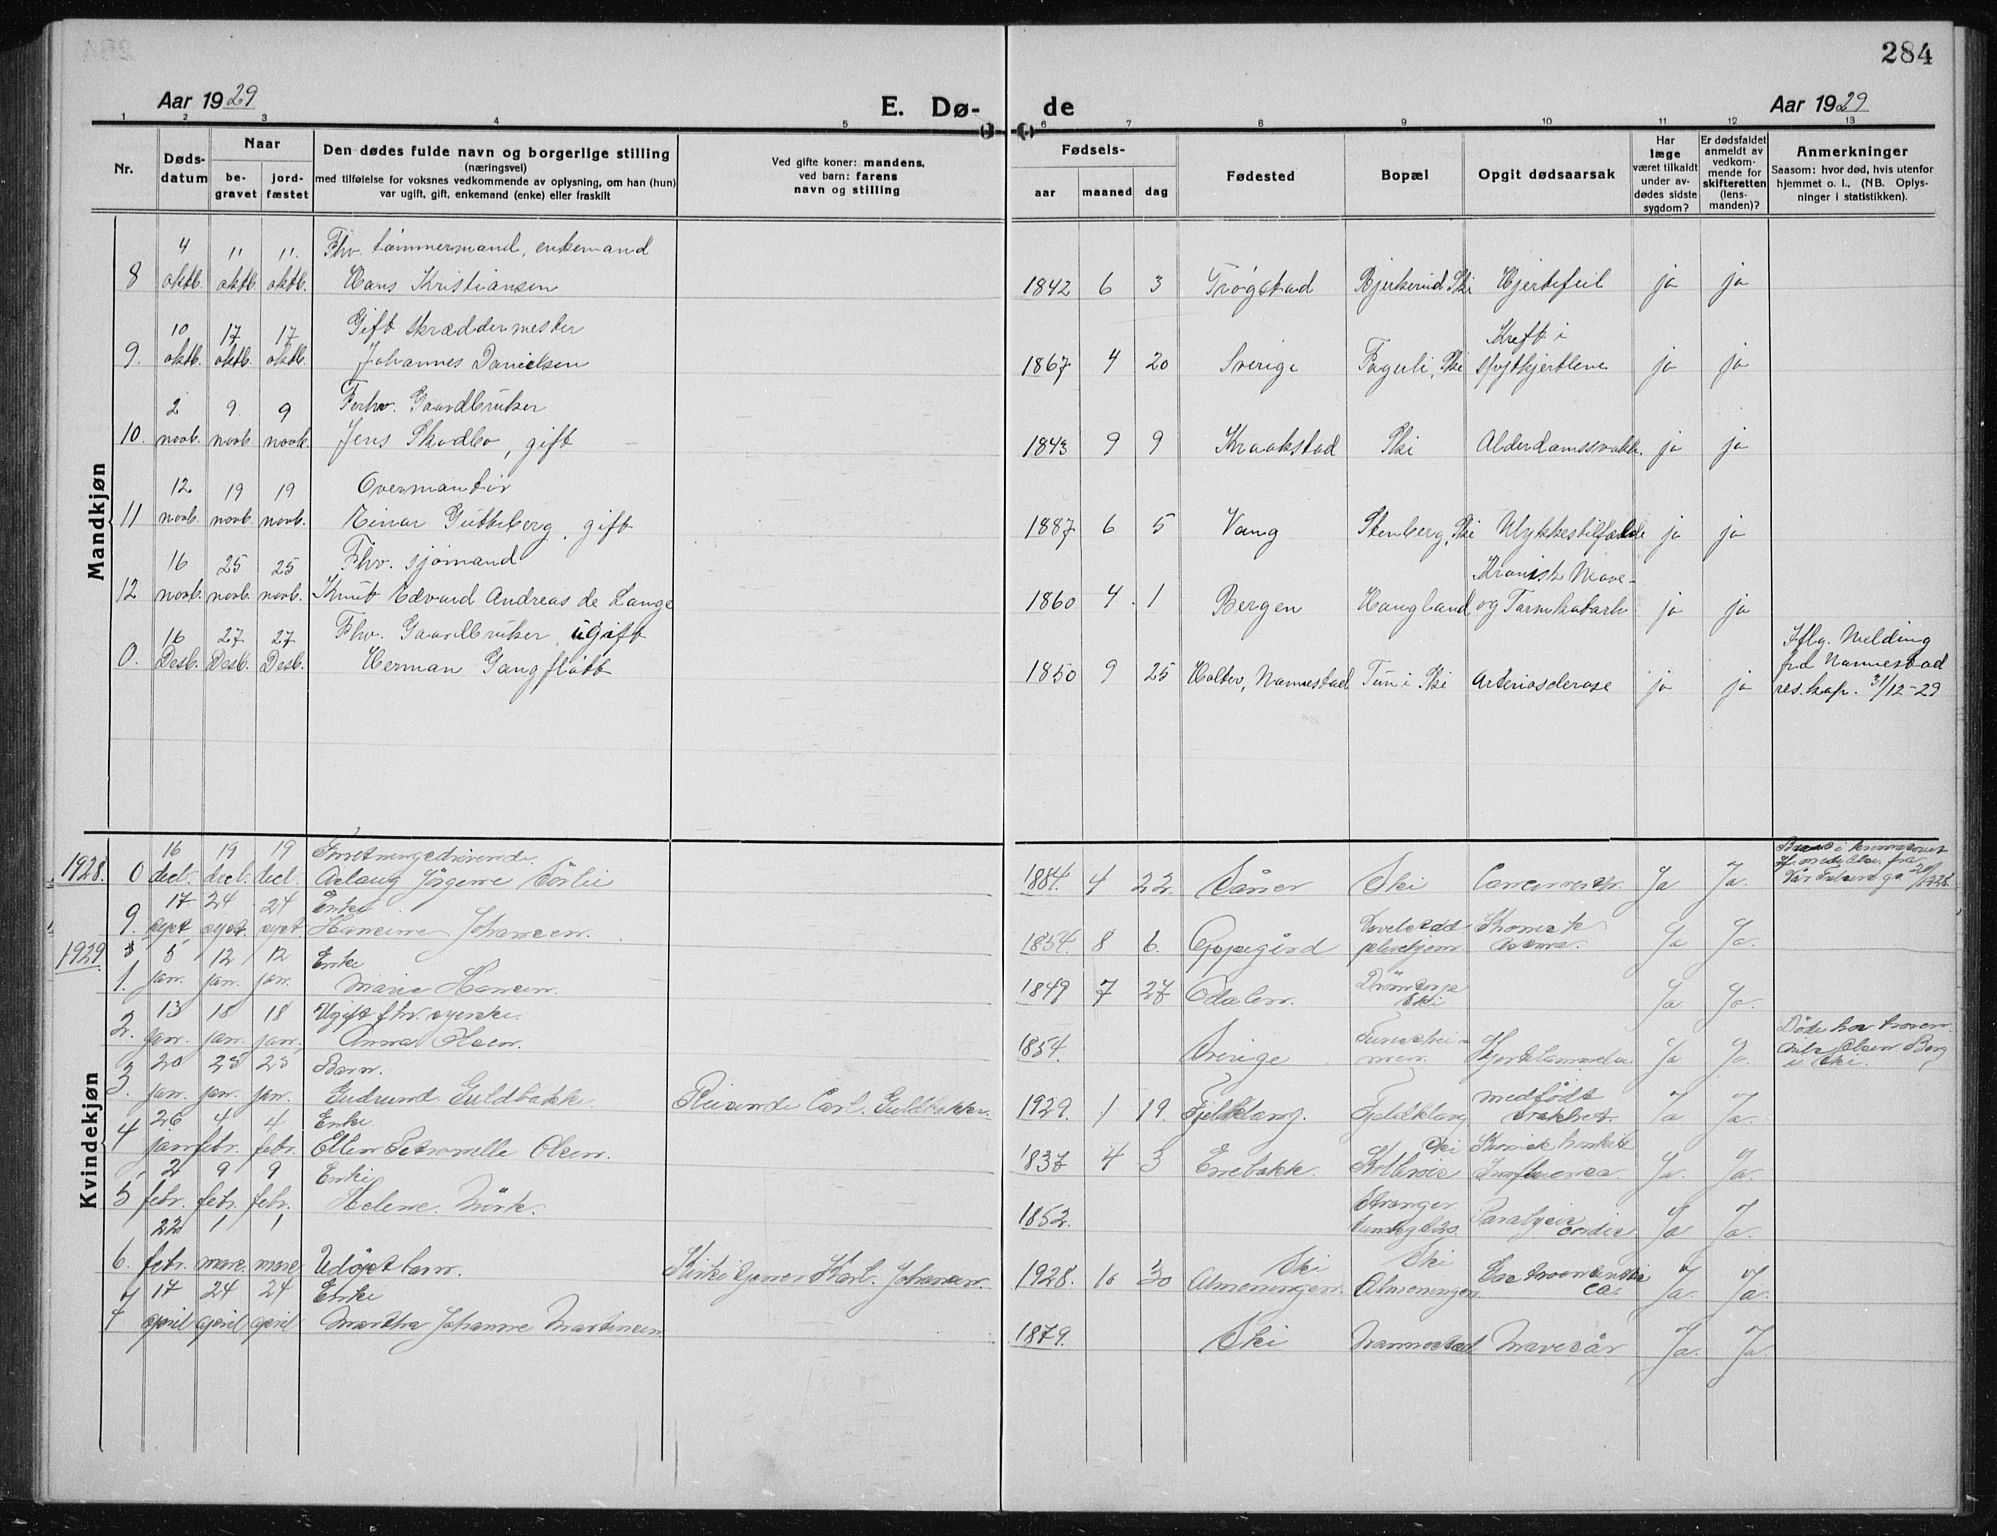 284
Aar 1929
E. Dø-
de
Aar 1929
1 2 3 4 5 6 7 8 9 10 11 12 13
Nr.
Døds-
datum
Naar
be-
gravet
jord-
fæstet
Den dødes fulde navn og borgerlige stilling
(næringsvei)
med tilføielse for voksnes vedkommende av oplysning, om han (hun)
var ugift, gift, enkemand (enke) eller fraskilt
Ved gifte koner: mandens,
ved barn: farens
navn og stilling
Fødsels-
aar
maaned
dag
Fødested
Bopæl
Opgit dødsaarsak
Har
læge
været tilkaldt
under av-
dødes sidste
sygdom?
Er dødsfaldet
anmeldt av
vedkom-
mende for
skifteretten
(lens-
manden)?
Anmerkninger
Saasom: hvor død, hvis utenfor
hjemmet o. l., (NB. Oplys-
ninger i statistikken).
Mandkjøn
4 11 11. Fhv. tømmermand, enkemand
8 oktb. oktb. oktb. Hans Kristiansen 1842 6 3 Trøgstad Bjerkerud, Ski Hjertefeil ja ja
10 17 17 Gift skræddermester Kreft i
9. oktb. oktb. oktb. Johannes Danielsen 1867 4 20 Sverige Fagerli, Ski spytkjertlene ja ja
2 9. 9 Forhv. Gaardbruker
10. novb. novb. novb. Jens Skodbo, gift 1843 9 9 Kraakstad Ski Alderdomssvakh. ja ja
12 19 19 Overmontør
11 novb. novb. novb. Einar Gutteberg, gift 1887 6 5 Vang Stenberg, Ski Ulykkestilfælde ja ja
16 25 25 Fhv. sjømand Kronisk Mave-
12 novb. novb. novb. Knut Edvard Andreas de Lange 1860 4 1 Bergen Haugland og Tarmkatarh ja ja
16 27 27 Fhv. Gaardbruker, ugift Iflg. Melding
0. Desb. Desb. Desb. Herman Gangfløtt 1850 9 25 Holter, Nannestad Tun i Ski Arteriosclerose ja ja fra Nannestad
res. kap. 31/12-29
Kvindekjøn
16 19 19 Forretningsdrivende
1928. 0 decb. decb. decb. Aslaug Jörgine 1884. 4 22. Såner Ski Ja Ja.
17 24 24 Enke
9. sept. sept. sept. Johansen. 1854. 8 6. Oppegård Ja Ja.
1929. 5 12 12 Enke
1. jan. jan. jan. Marie Hansen. 1849 7 27 Odalen. Ski Ja Ja.
13 18 18 Ugift fhv. syerske. Döde hos
2. jan. jan. jan. Anna Olsen. 1854. Sverige Hjertelammelse Ja Ja. Olsen Berg
i Ski.
20 25 25 Barn. medfödt
3. jan. jan. jan. Gudrund Guldbakke. Reisende Carl. Guldbakke. 1929. 1 19. Fjeldklang. Fjeldklang svakhet Ja Ja.
26 4 4 Enke Ski
4 jan. febr. febr. Ellen Petronelle Olsen. 1837 4 3 Enebakk. Influensa. Ja. Ja.
2 9 9 Enke
5 febr. febr. febr. Helene Mörk. 1852. Paralysis cordis. Ja Ja.
22 1 1 Ski Ski
6. febr. mars. mars. Udöpt barn. Kirketjener Karl. Johansen. 1928. 10 30 Almeningen. Almeningen. Ja. Ja.
17 24 24 Enke
7 april april april Martha Johanne Martinsen 1879. Ski Mavesår Ja. Ja.